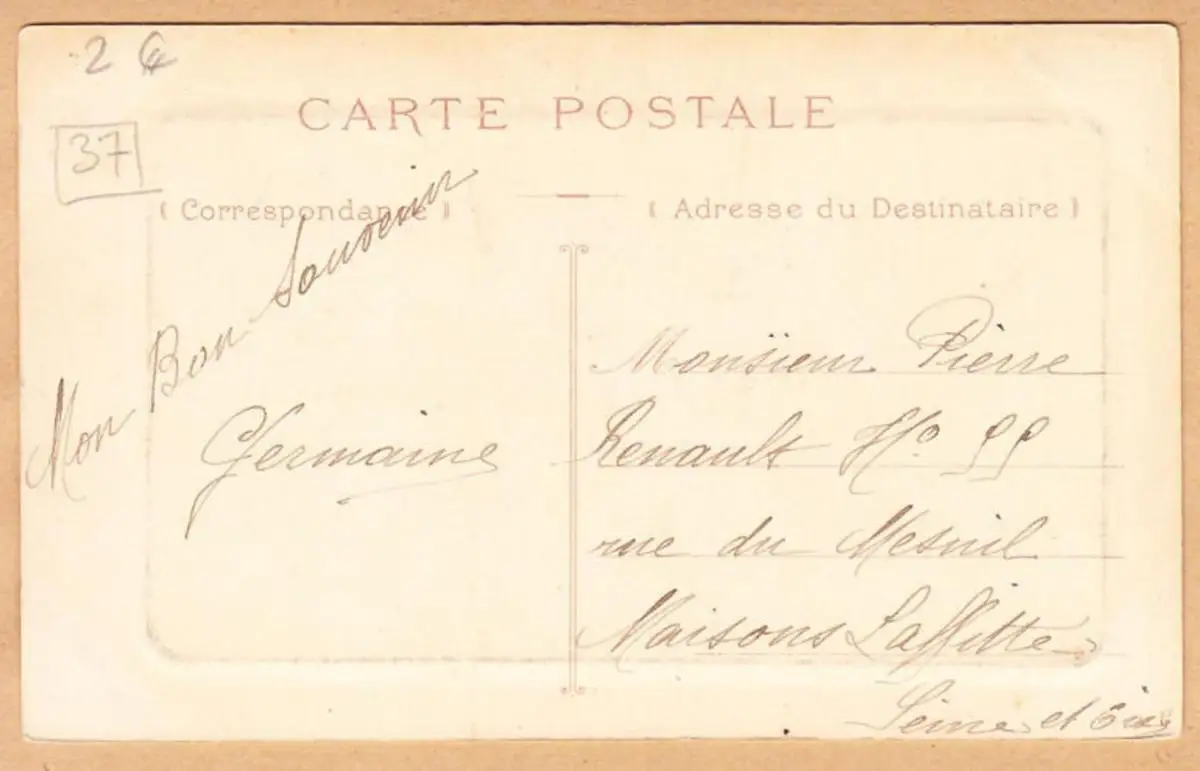 2 €
CARTE POSTALE
37
( Correspondance )
( Adresse du Destinataire )
Mon Bon Souvenir
Germaine
Monsieur Pierre
Renault No 55
rue du Mesnil
Maisons Laffitte
Seine et Oise